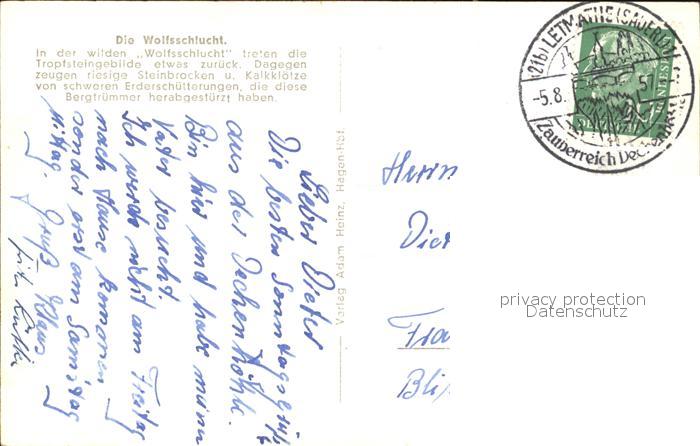 Die Wolfsschlucht.
In der wilden „Wolfsschlucht" treten die
Tropfsteingebilde etwas zurück. Dagegen
zeugen riesige Steinbrocken u. Kalkklötze
von schweren Erderschütterungen, die diese
Bergtrümmer herabgestürzt haben.
Lieber Dieter
Die besten Sonntagsgrüße
aus der Dechenhöhle.
Bin hier und habe meinen
Vater besucht.
Ich werde nicht am Freitag
nach Hause kommen
sonder erst am Samstag
Mittag.
Gruß Klaus
Verlag Adam Heinz, Hagen-Hbf.
(21b) LETMATHE (SAUERL)
-5.8.
Zauberreich
Herrn
Diet
Fra
privacy protection
Datenschutz